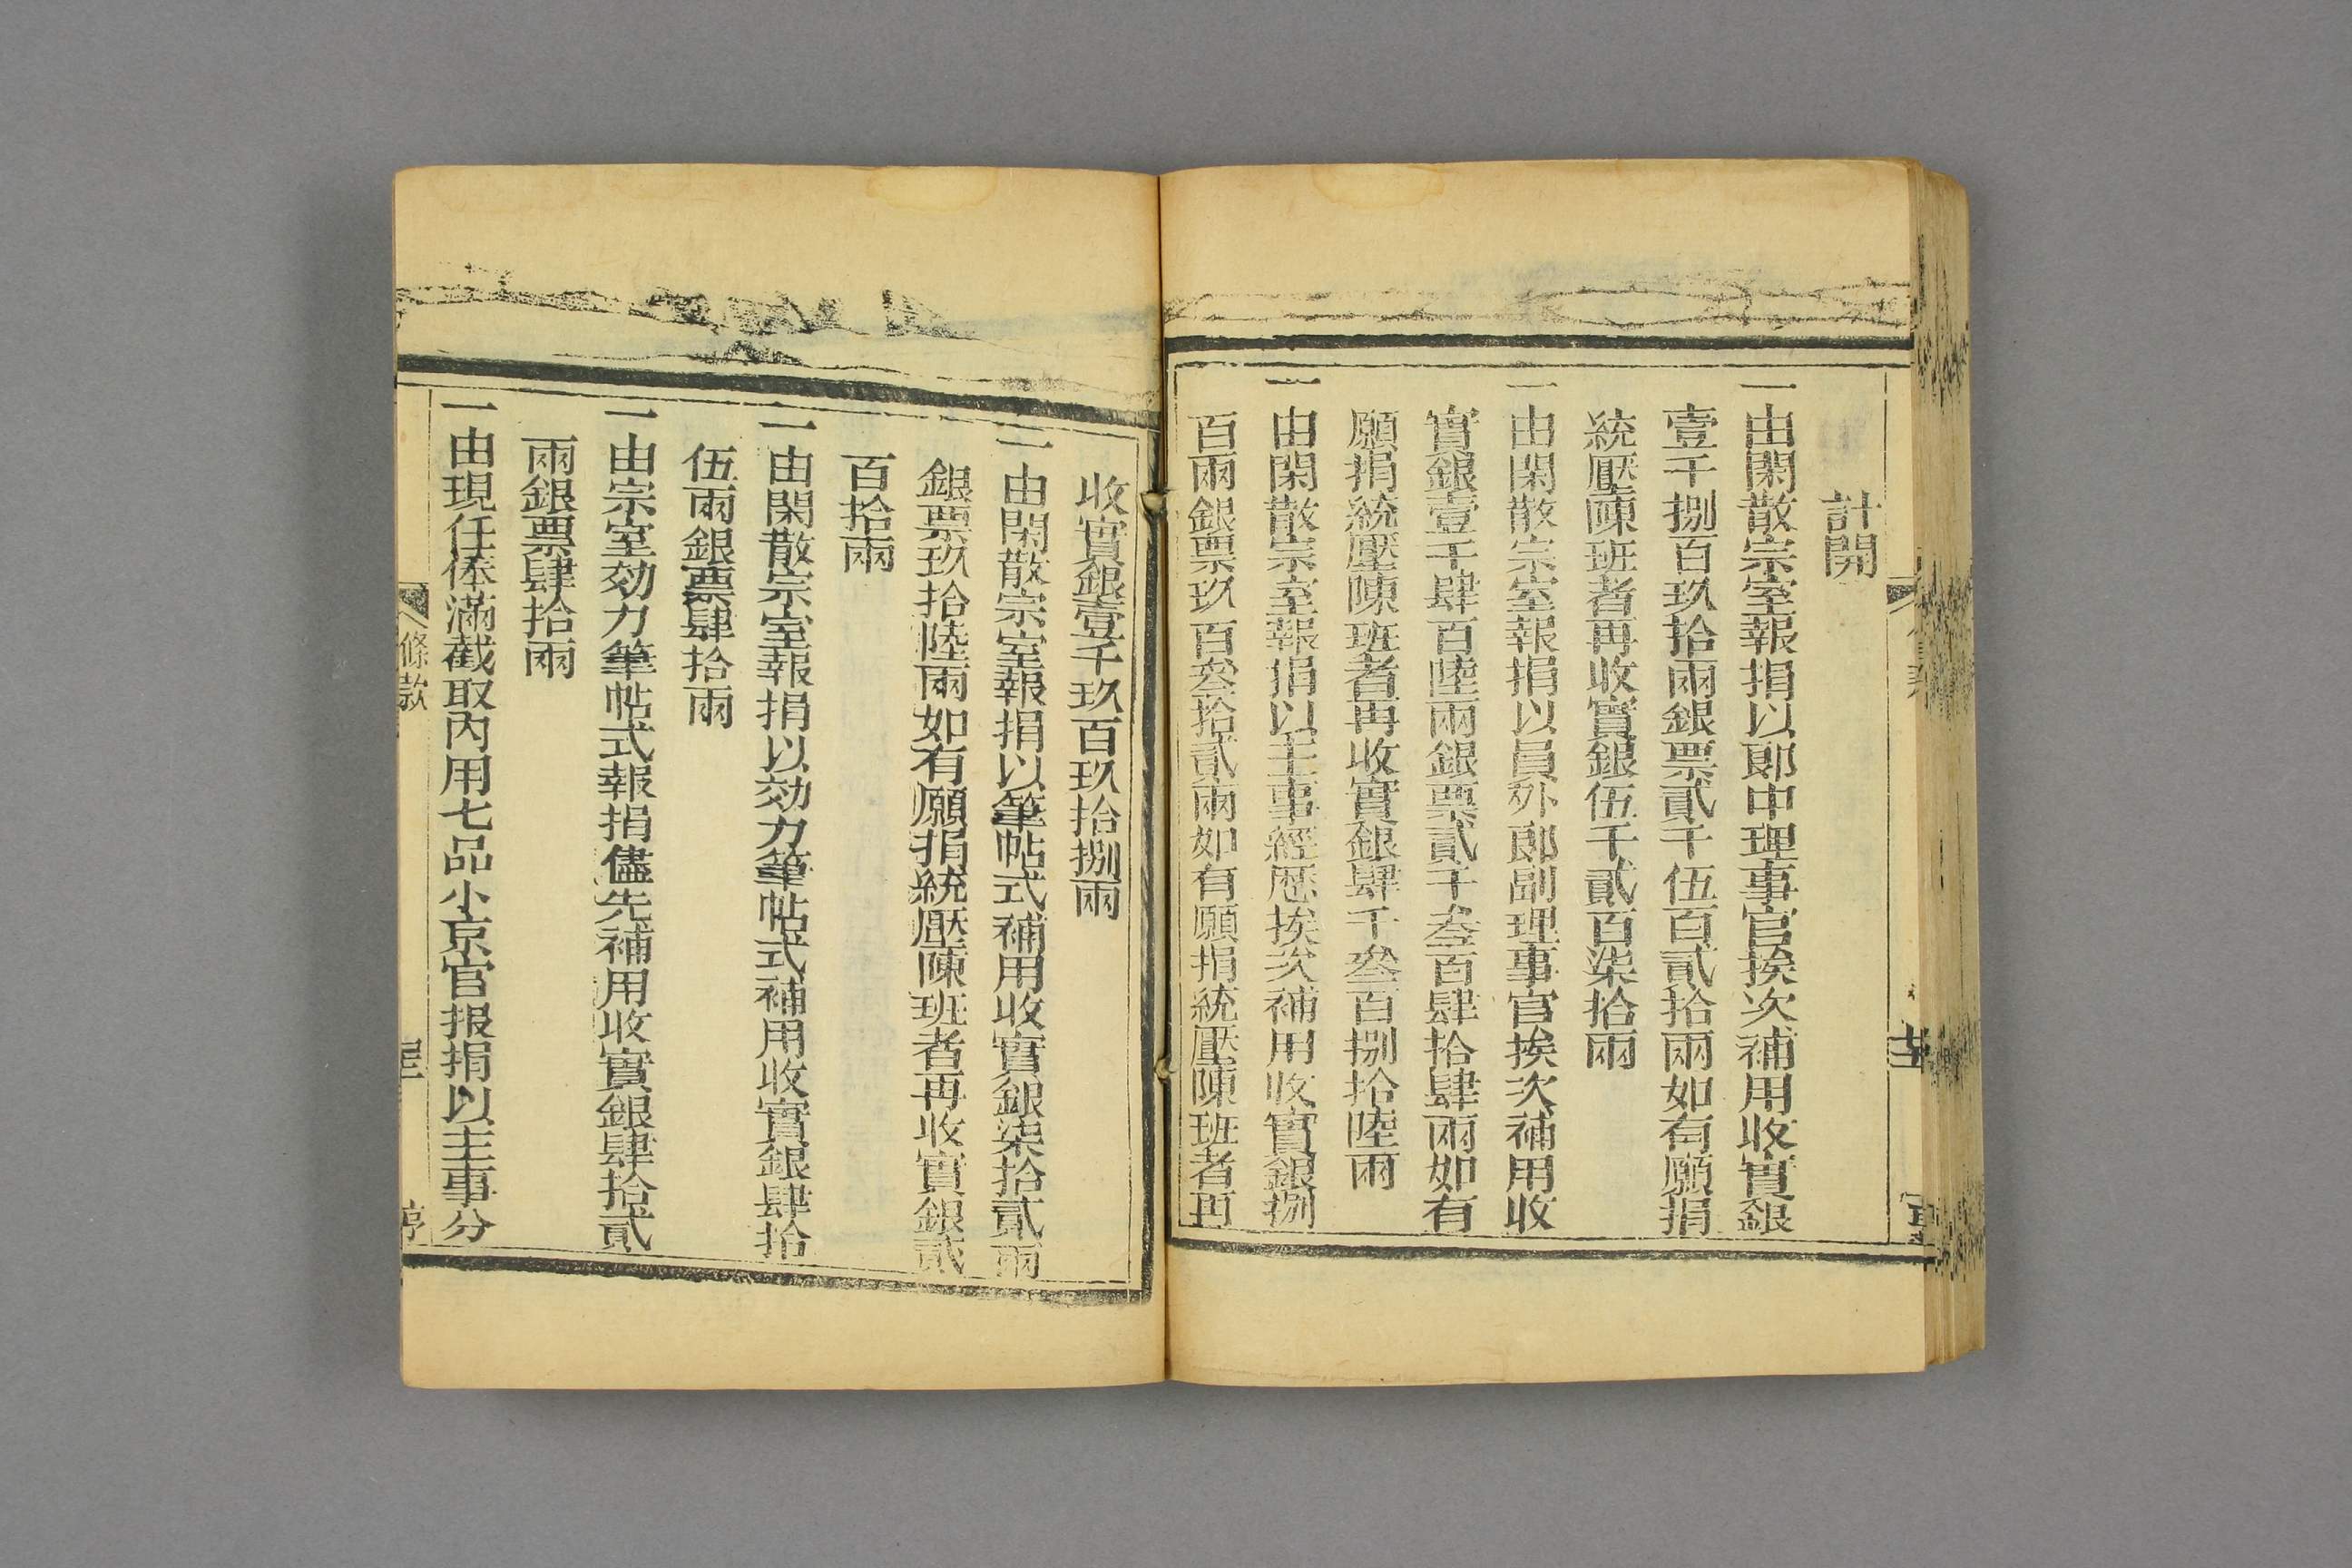 計開
一由閑散宗室報捐以郞中理事官挨次補用收實銀
壹千捌百玖拾兩銀票貳千伍百貳拾兩如有願捐
統壓陳班者再收實銀伍千貳百柒拾兩
一由閑散宗室報捐以員外郞副理事官挨次補用收
實銀壹千肆百陸兩銀票貳千叁百肆拾肆兩如有
願捐統壓陳班者再收實銀肆千叁百捌拾陸兩
一由閑散宗室報捐以主事經歷挨次補用收實銀捌
百兩銀票玖百叁拾貳兩如有願捐統壓陳班者再
收實銀壹千玖百玖拾捌兩
一由閑散宗室報捐以筆帖式補用收實銀柒拾貳兩
銀票玖拾陸兩如有願捐統壓陳班者再收實銀貳
百拾兩
一由閑散宗室報捐以効力筆帖式補用收實銀肆拾
伍兩銀票肆拾兩
一由宗室効力筆帖式報捐儘先補用收實銀肆拾貳
兩銀票肆拾兩
一由現任俸滿截取內用七品小京官报捐以主事分
條款